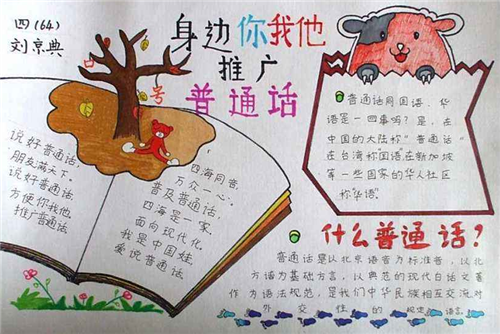 四(64)
刘京典
身边你我他
推广
普通话
号
说好普通话,
朋友满天下,
说好普通话,
方便你我他,
推广普通话
四海同音,
万众一心,
普及普通话,
四海是一家,
面向现代化,
我是中国娃,
爱说普通话.
普通话同国语、华
语是一回事吗?是,在
中国的大陆称"普通话"
在台湾称国语在新加坡
等一些国家的华人社区
称华语.
什么普通话?
普通话是以北京语音为标准音,以北
方话为基础方言,以典范的现代白话文著
作为语法规范,是我们中华民族相互交流对
外交性的语言